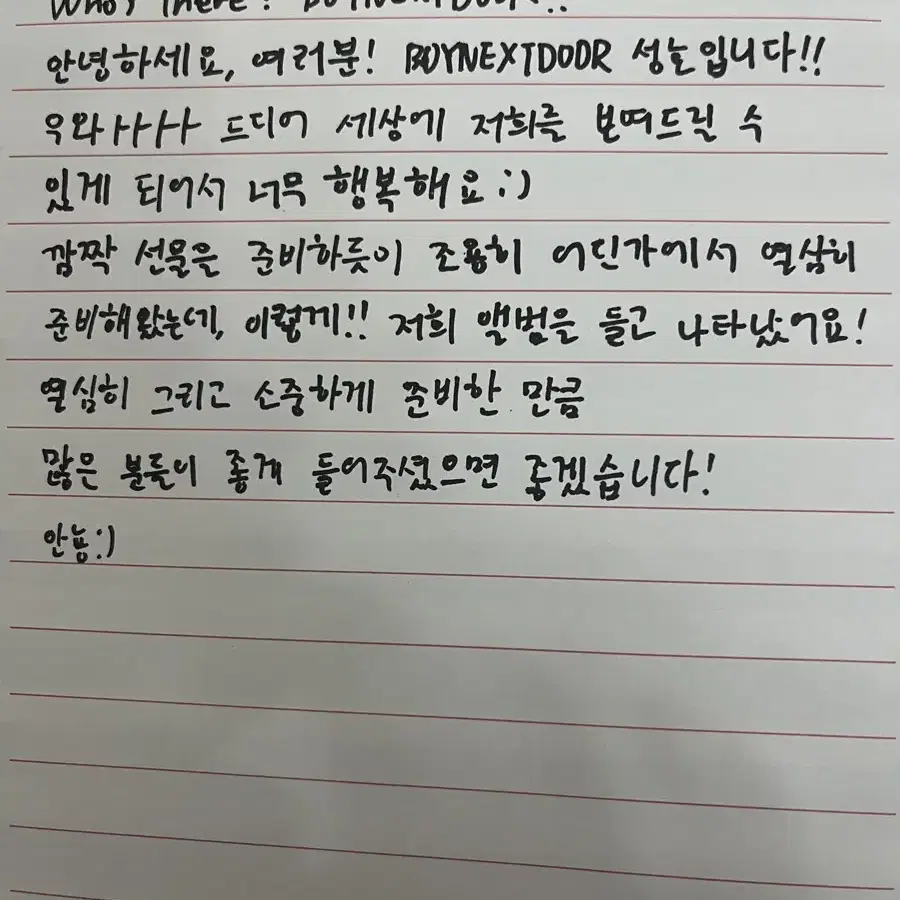 Who's there? BOYNEXTDOOR!!
안녕하세요, 여러분! BOYNEXTDOOR 성호입니다!!
우와ㅏㅏㅏㅏ 드디어 세상에 저희를 보여드릴 수
있게 되어서 너무 행복해요:)
깜짝 선물을 준비하듯이 조용히 어딘가에서 열심히
준비해왔는데, 이렇게!! 저희 앨범을 들고 나타났어요!
열심히 그리고 소중하게 준비한 만큼
많은 분들이 좋게 들어주셨으면 좋겠습니다!
안뇽:)